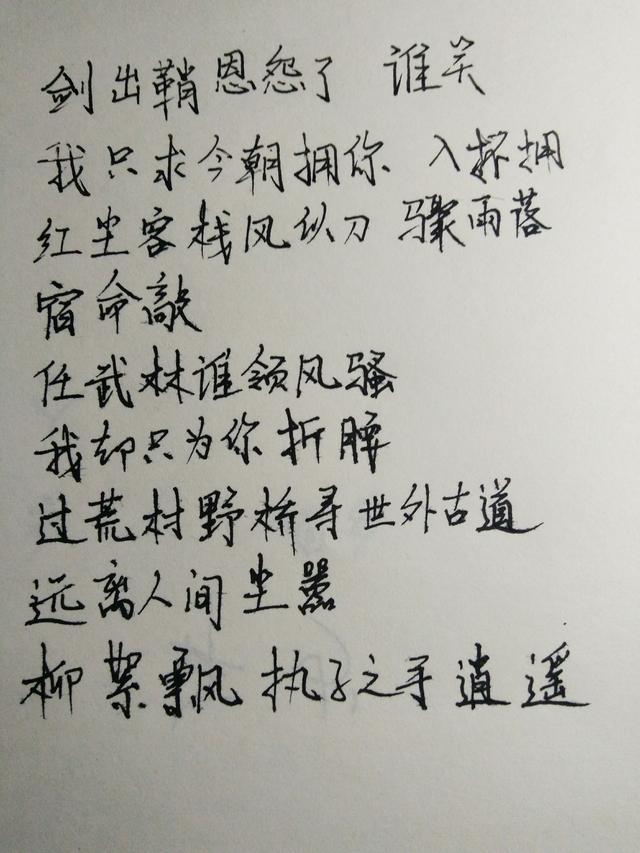 剑出鞘恩怨了 谁笑
我只求今朝拥你 入怀抱
红尘客栈风似刀 骤雨落
宿命敲
任武林谁领风骚
我却只为你折腰
过荒村野桥寻世外古道
远离人间尘嚣
柳絮飘 执子之手逍遥